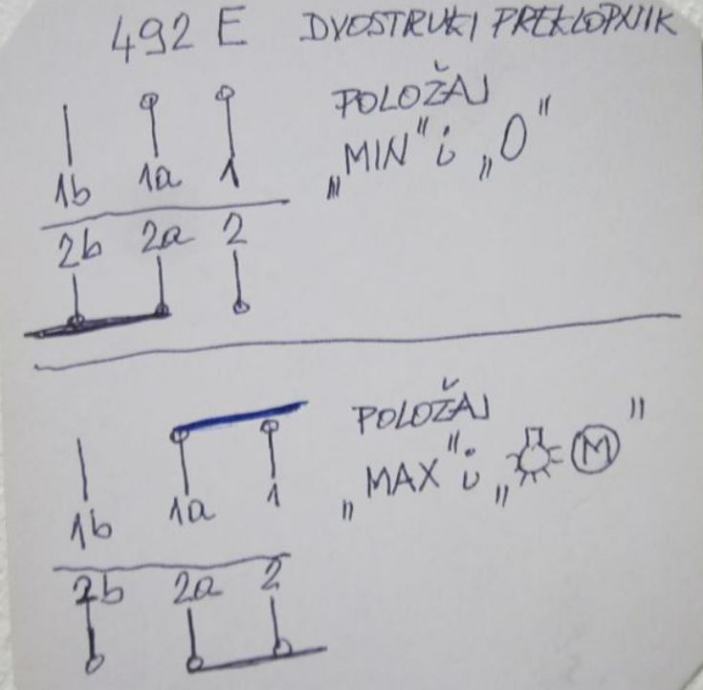 492 E DVOSTRUKI PREKLOPNIK
POLOŽAJ
„MIN" i „0"
1b 1a 1
2b 2a 2
POLOŽAJ
„MAX" i „ M "
1b 1a 1
2b 2a 2